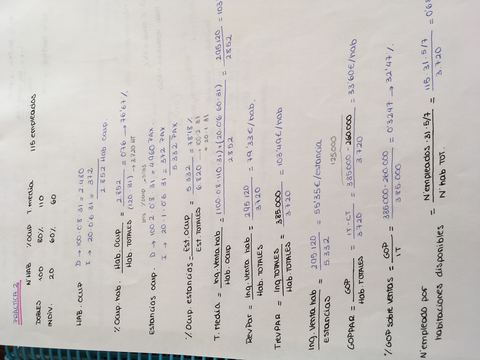 PRÁCTICA 2
N HAB % OCUP T. media 115 empleados
DOBLES 100 80% 110
INDIV. 20 60% 60
HAB. OCUP D → 100·0'8·31 = 2480
I → 20·0'6·31 = 372
2852 Hab ocup.
% Ocup hab. = Hab. OCUP / Hab TOTALES = 2852 / (120·31) 3.720 HT = 0'76 → 76'67%
Estancias ocup. D → 100·2·0'8·31 = 4960 PAX
I → 20·1·0'6·31 = 372 PAX
5.332 PAX
% Ocup estancias = Est ocup / Est TOTALES = 5.332 / 6.820 = 78'18% → 100·2·31 + 20·1·31
T. Media = Ing. venta hab / Hab. ocup = (100·0'8·110·31) + (20·0'6·60·31) / 2852 = 295.120 / 2852 = 103
RevPar = Ing. venta hab / Hab. TOTALES = 295.120 / 3.720 = 79'33€/hab.
TrevPAR = Ing TOTALES / Hab. TOTALES = 385.000 / 3.720 = 103'49€/hab
Ing. Venta hab / estancias = 295.120 / 5.332 = 55'35€/estancia
125.000
GOPPAR = GOP / Hab TOTALES = IT-CT / 3.720 = 385000 - 260.000 / 3.720 = 33'60€/hab
% GOP sobre ventas = GOP / IT = 385.000 - 260.000 / 385.000 = 0'3247 → 32'47%
N empleado por habitaciones disponibles = N empleados·31·5/7 / N hab TOT. = 115·31·5/7 / 3.720 = 0'6